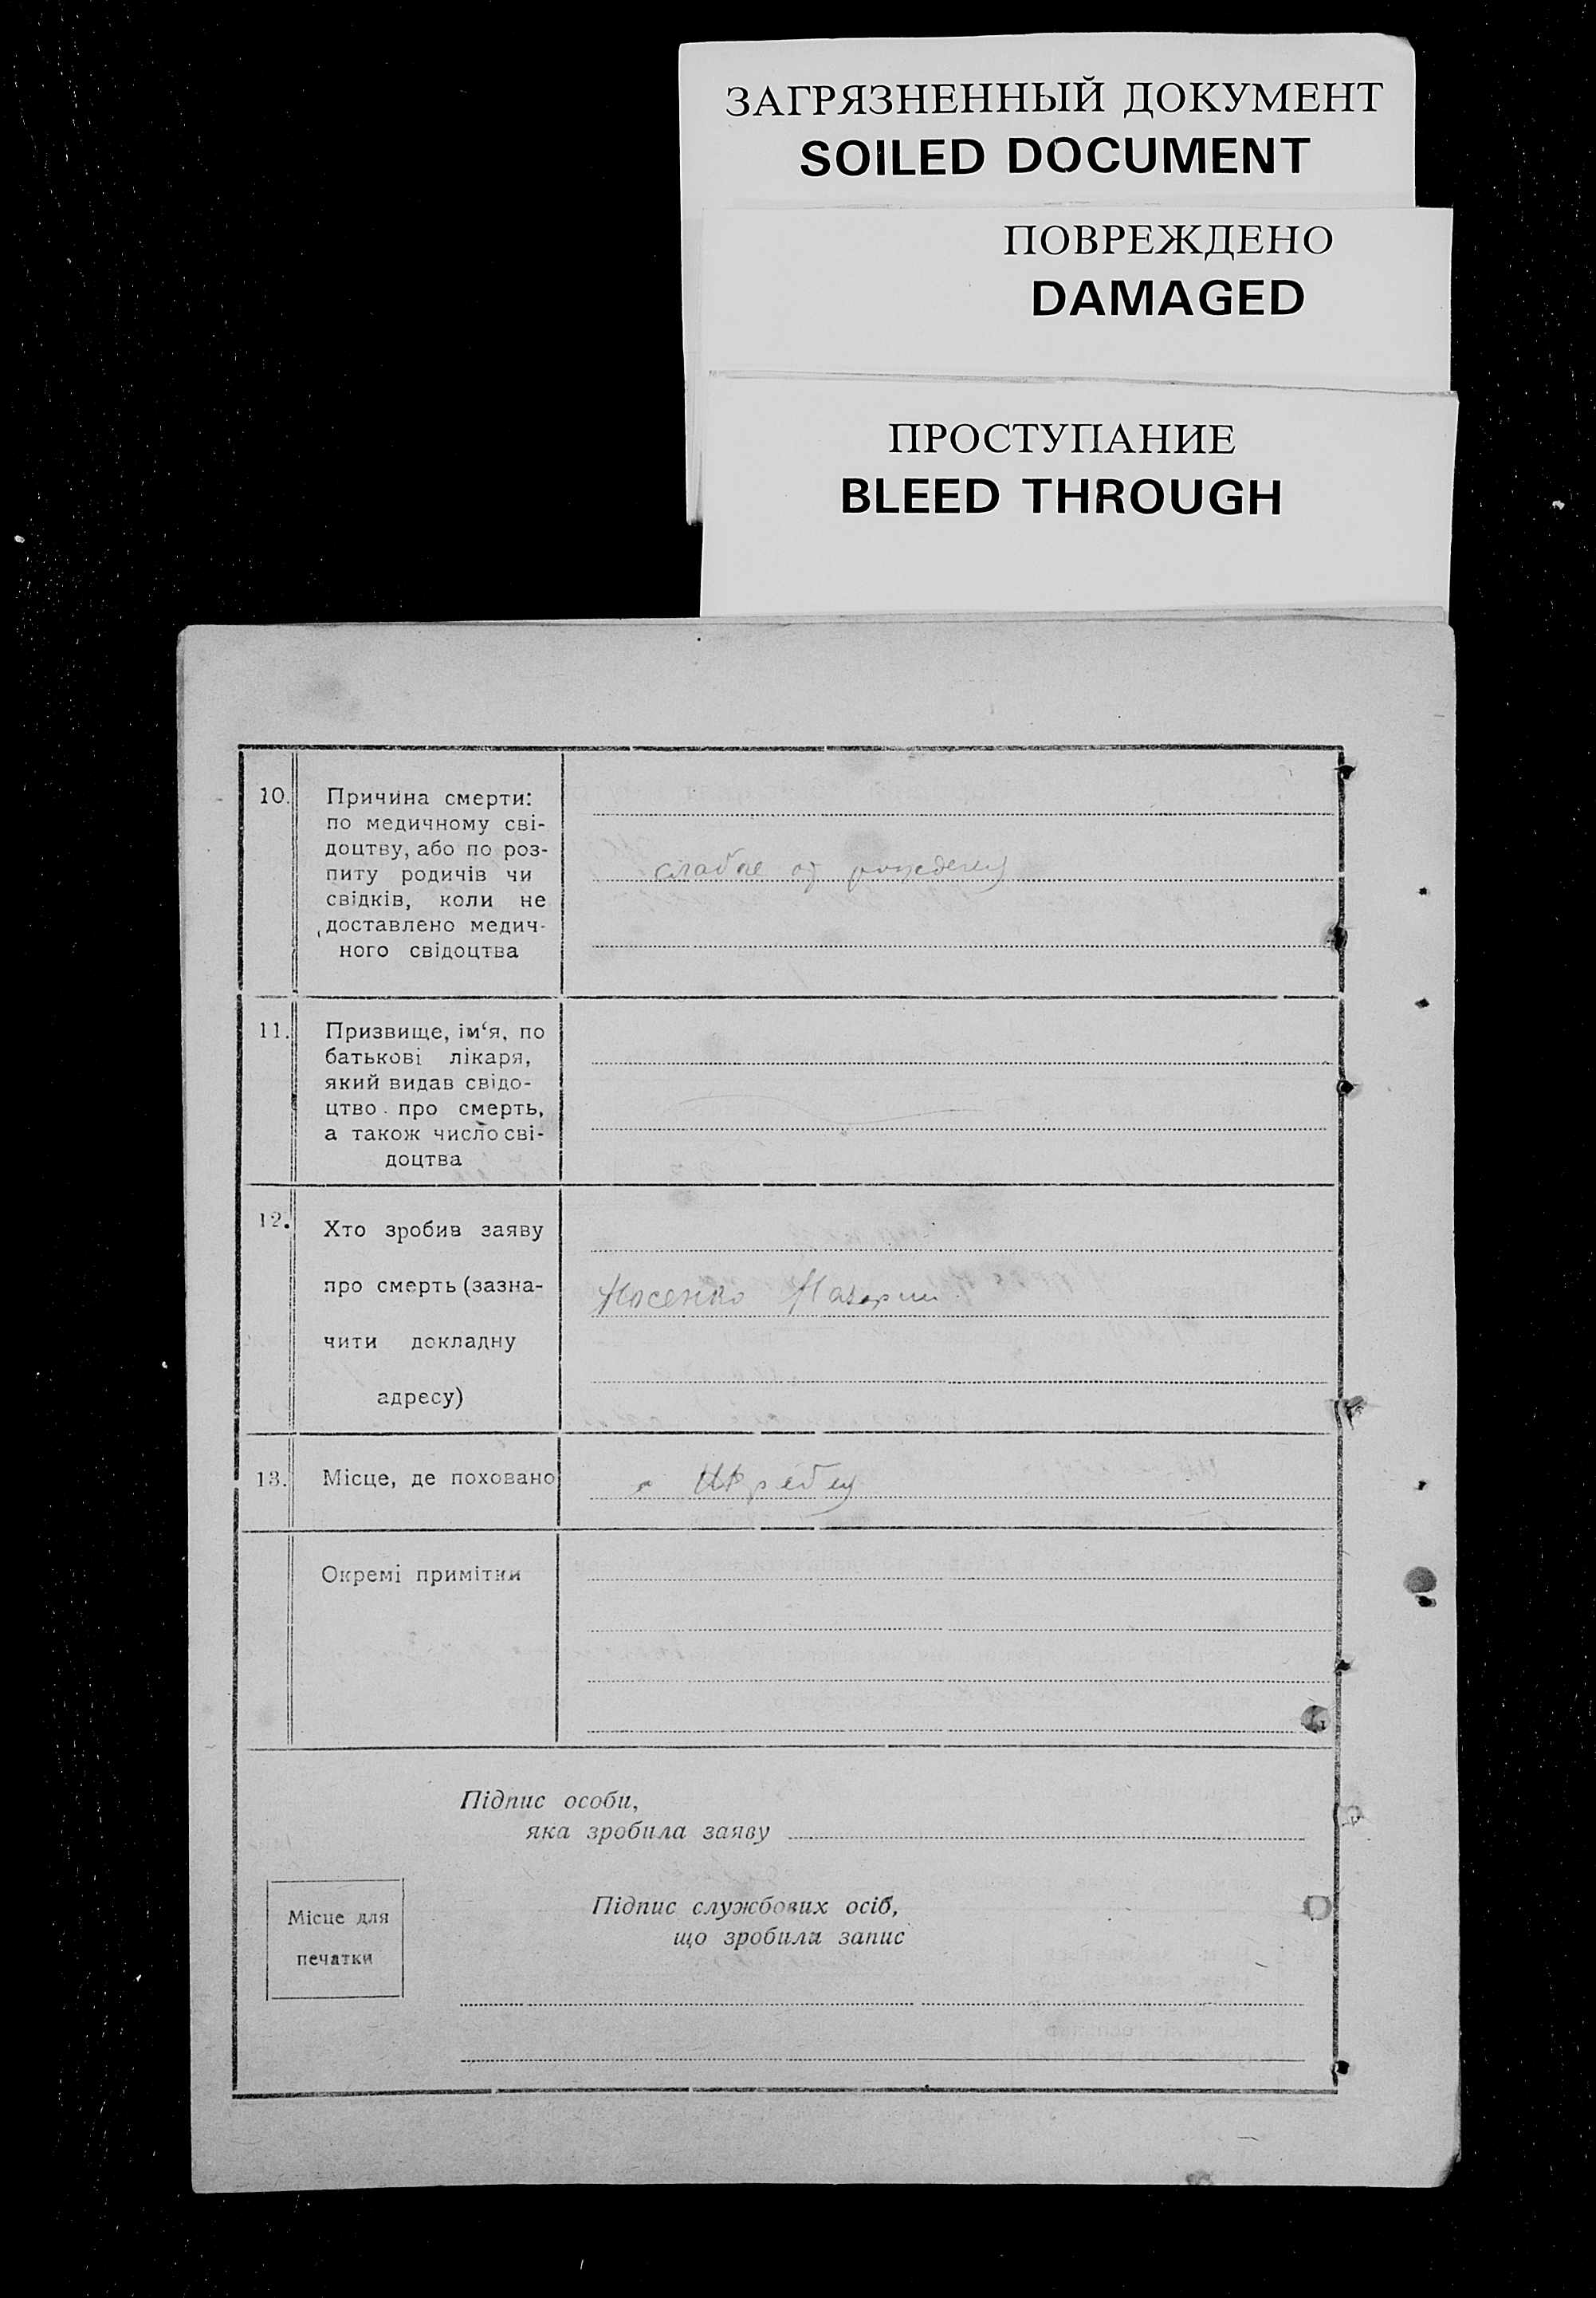 ЗАГРЯЗНЕННЫЙ ДОКУМЕНТ
SOILED DOCUMENT
ПОВРЕЖДЕНО
DAMAGED
ПРОСТУПАНИЕ
BLEED THROUGH
10. Причина смерти:
по медичному сві-
доцтву, або по роз-
питу родичів чи
свідків, коли не
доставлено медич-
ного свідоцтва
слабое от
11. Призвище, ім‘я, по
батькові лікаря,
який видав свідо-
цтво про смерть,
а також число сві-
доцтва
12. Хто зробив заяву
про смерть (зазна-
чити докладну
адресу)
Носенко
13. Місце, де поховано
Окремі примітки
Підпис особи,
яка зробила заяву
Місце для
печатки
Підпис службових осіб,
що зробили запис